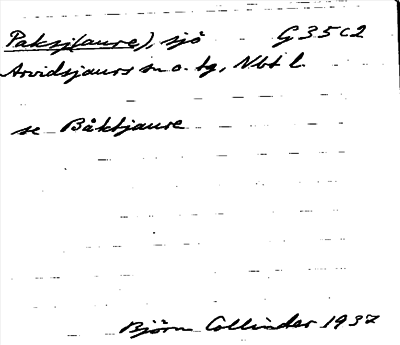 Paksj(aure), sjö G 35 c 2
Arvidsjaurs sn o. tg, Nbt l.
se Båktjaure
Björn Collinder 1937